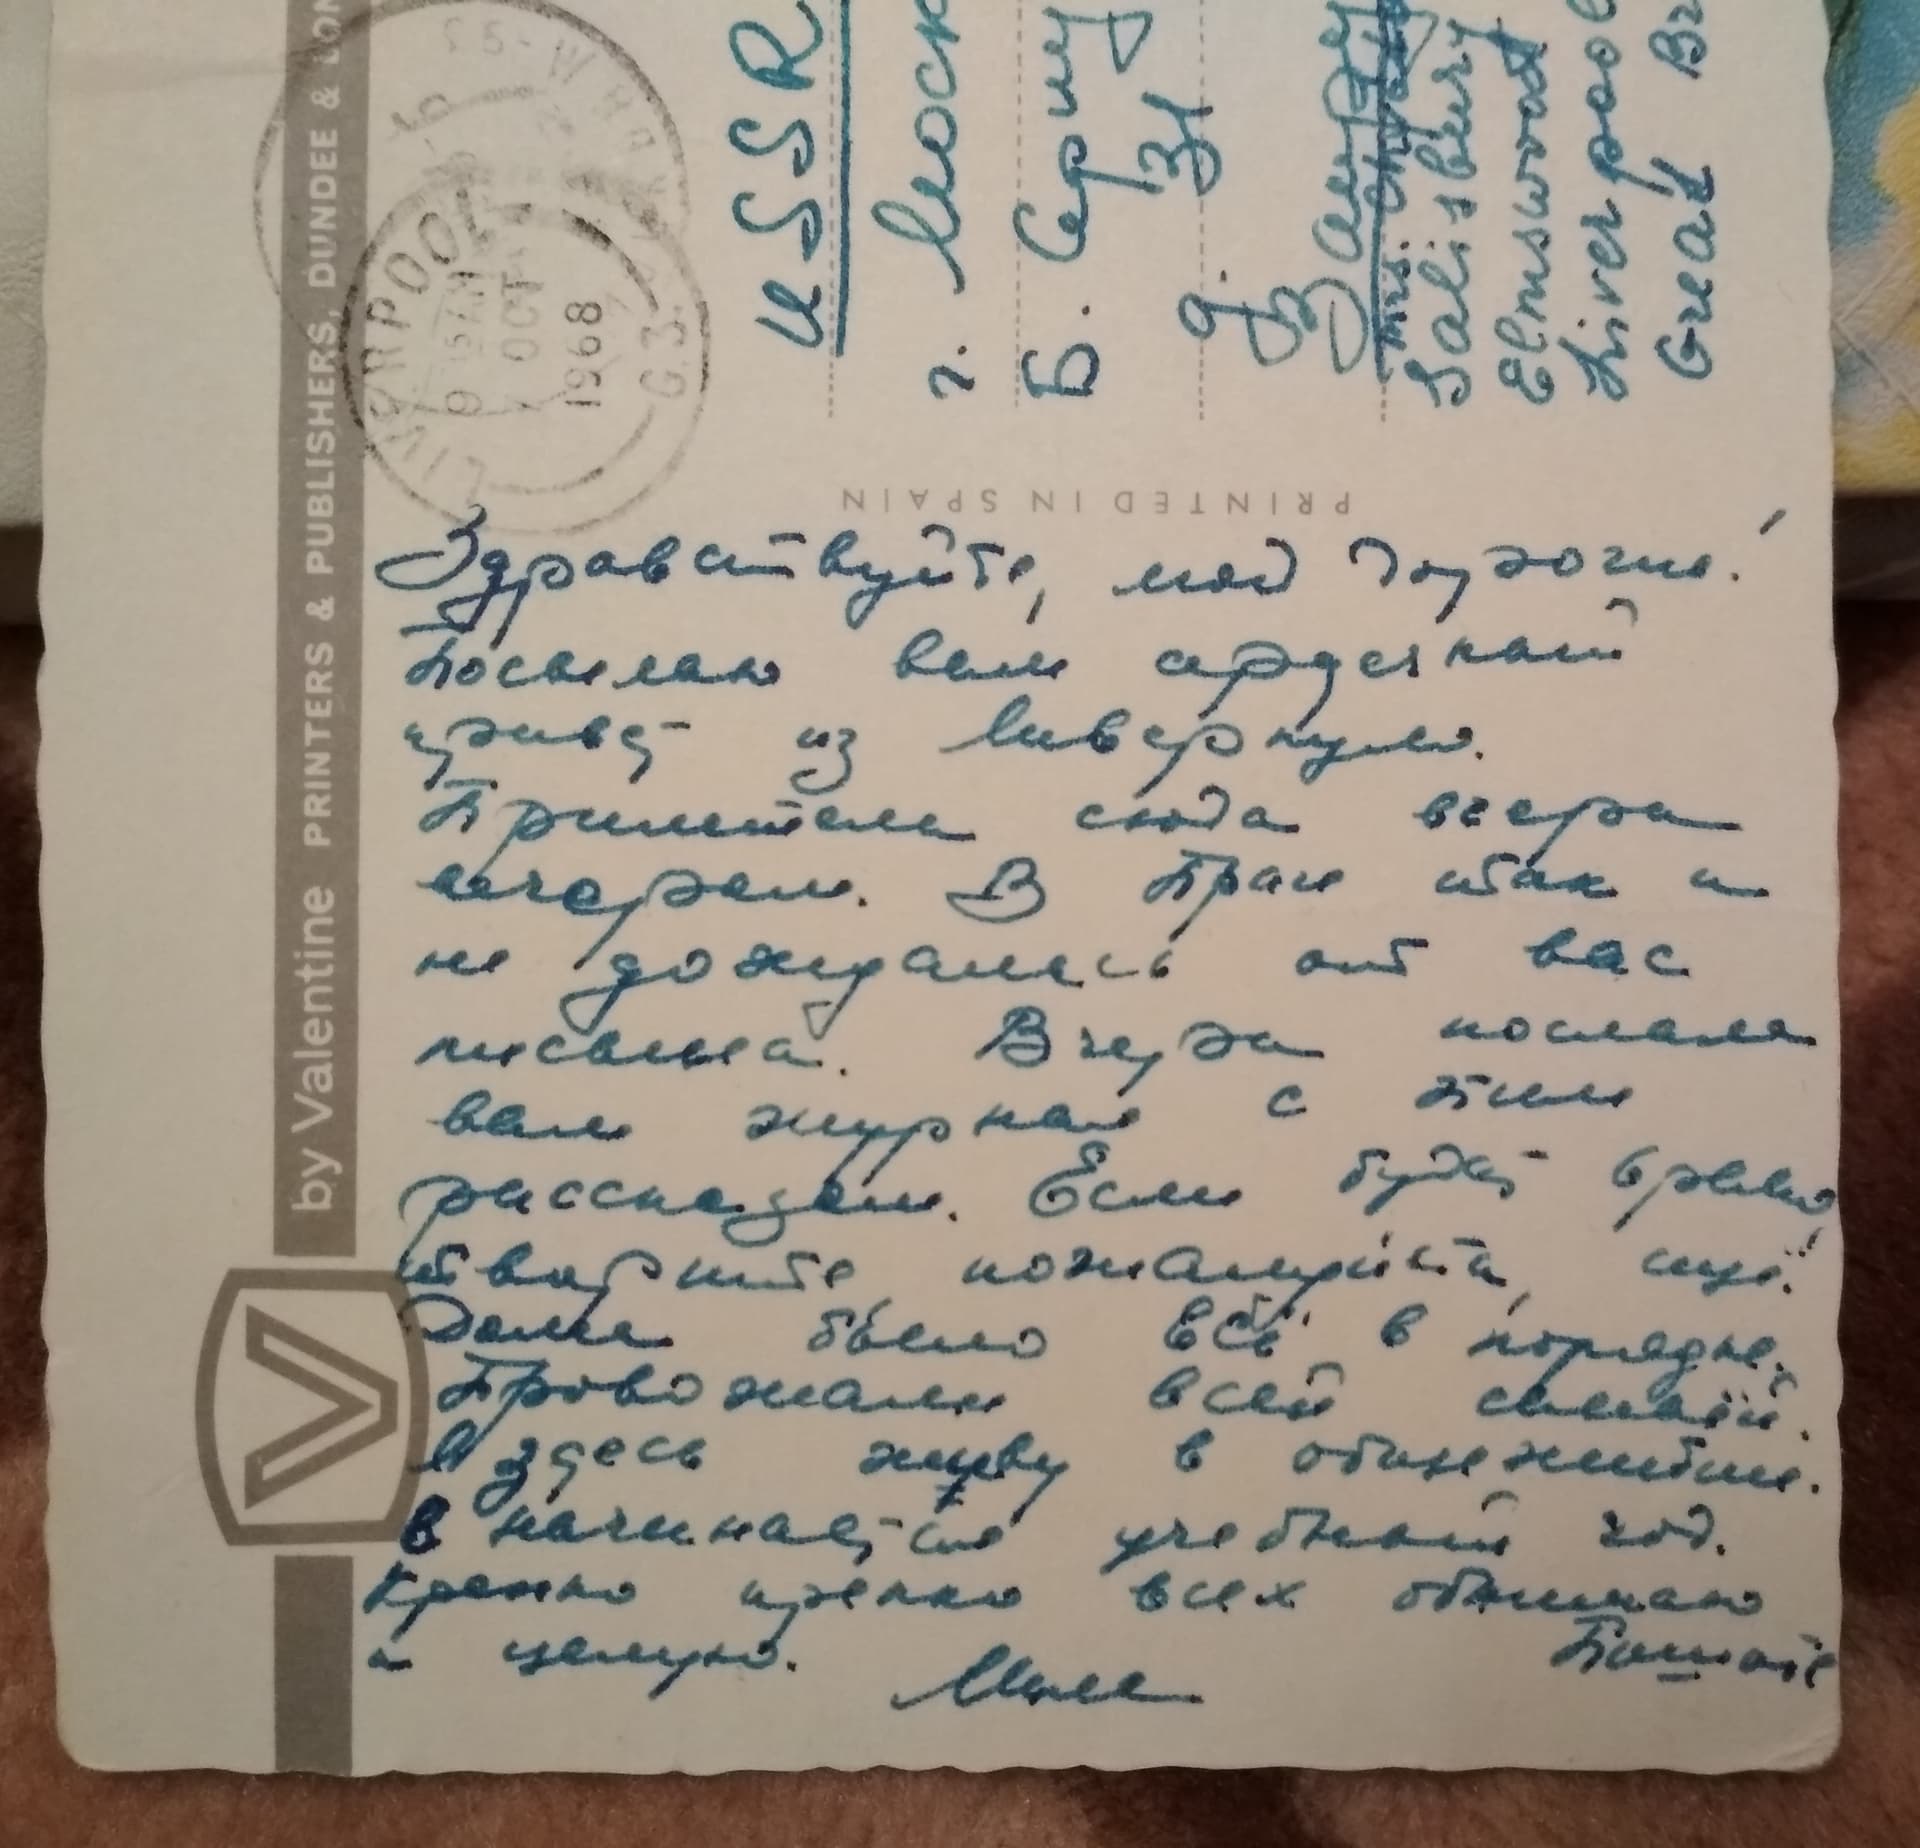 by Valentine PRINTERS & PUBLISHERS, DUNDEE & LON
LIVERPOOL
9 15 AM
OCT
1968
G.3.
USSR
г. Моск
Б. Серпу
31
Salisbury
Elmswood
Liverpool
Great Br
PRINTED IN SPAIN
Здравствуйте, мои дорогие!
Посылаю вам сердечный
привет из Ливерпуля.
Прилетела сюда вчера
вечером. В Праге так и
не дождалась от вас
письма. Вчера послала
вам журнал с этим
рассказом. Если будет время,
пожалуйста, ещё.
Дома было всё в порядке.
Провожали всей семьёй.
А здесь живу в общежитии.
начинается учебный год.
Крепко крепко всех обнимаю
и целую.
Пишите